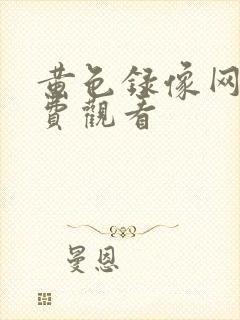 黄色録像网
費觀看
曼恩